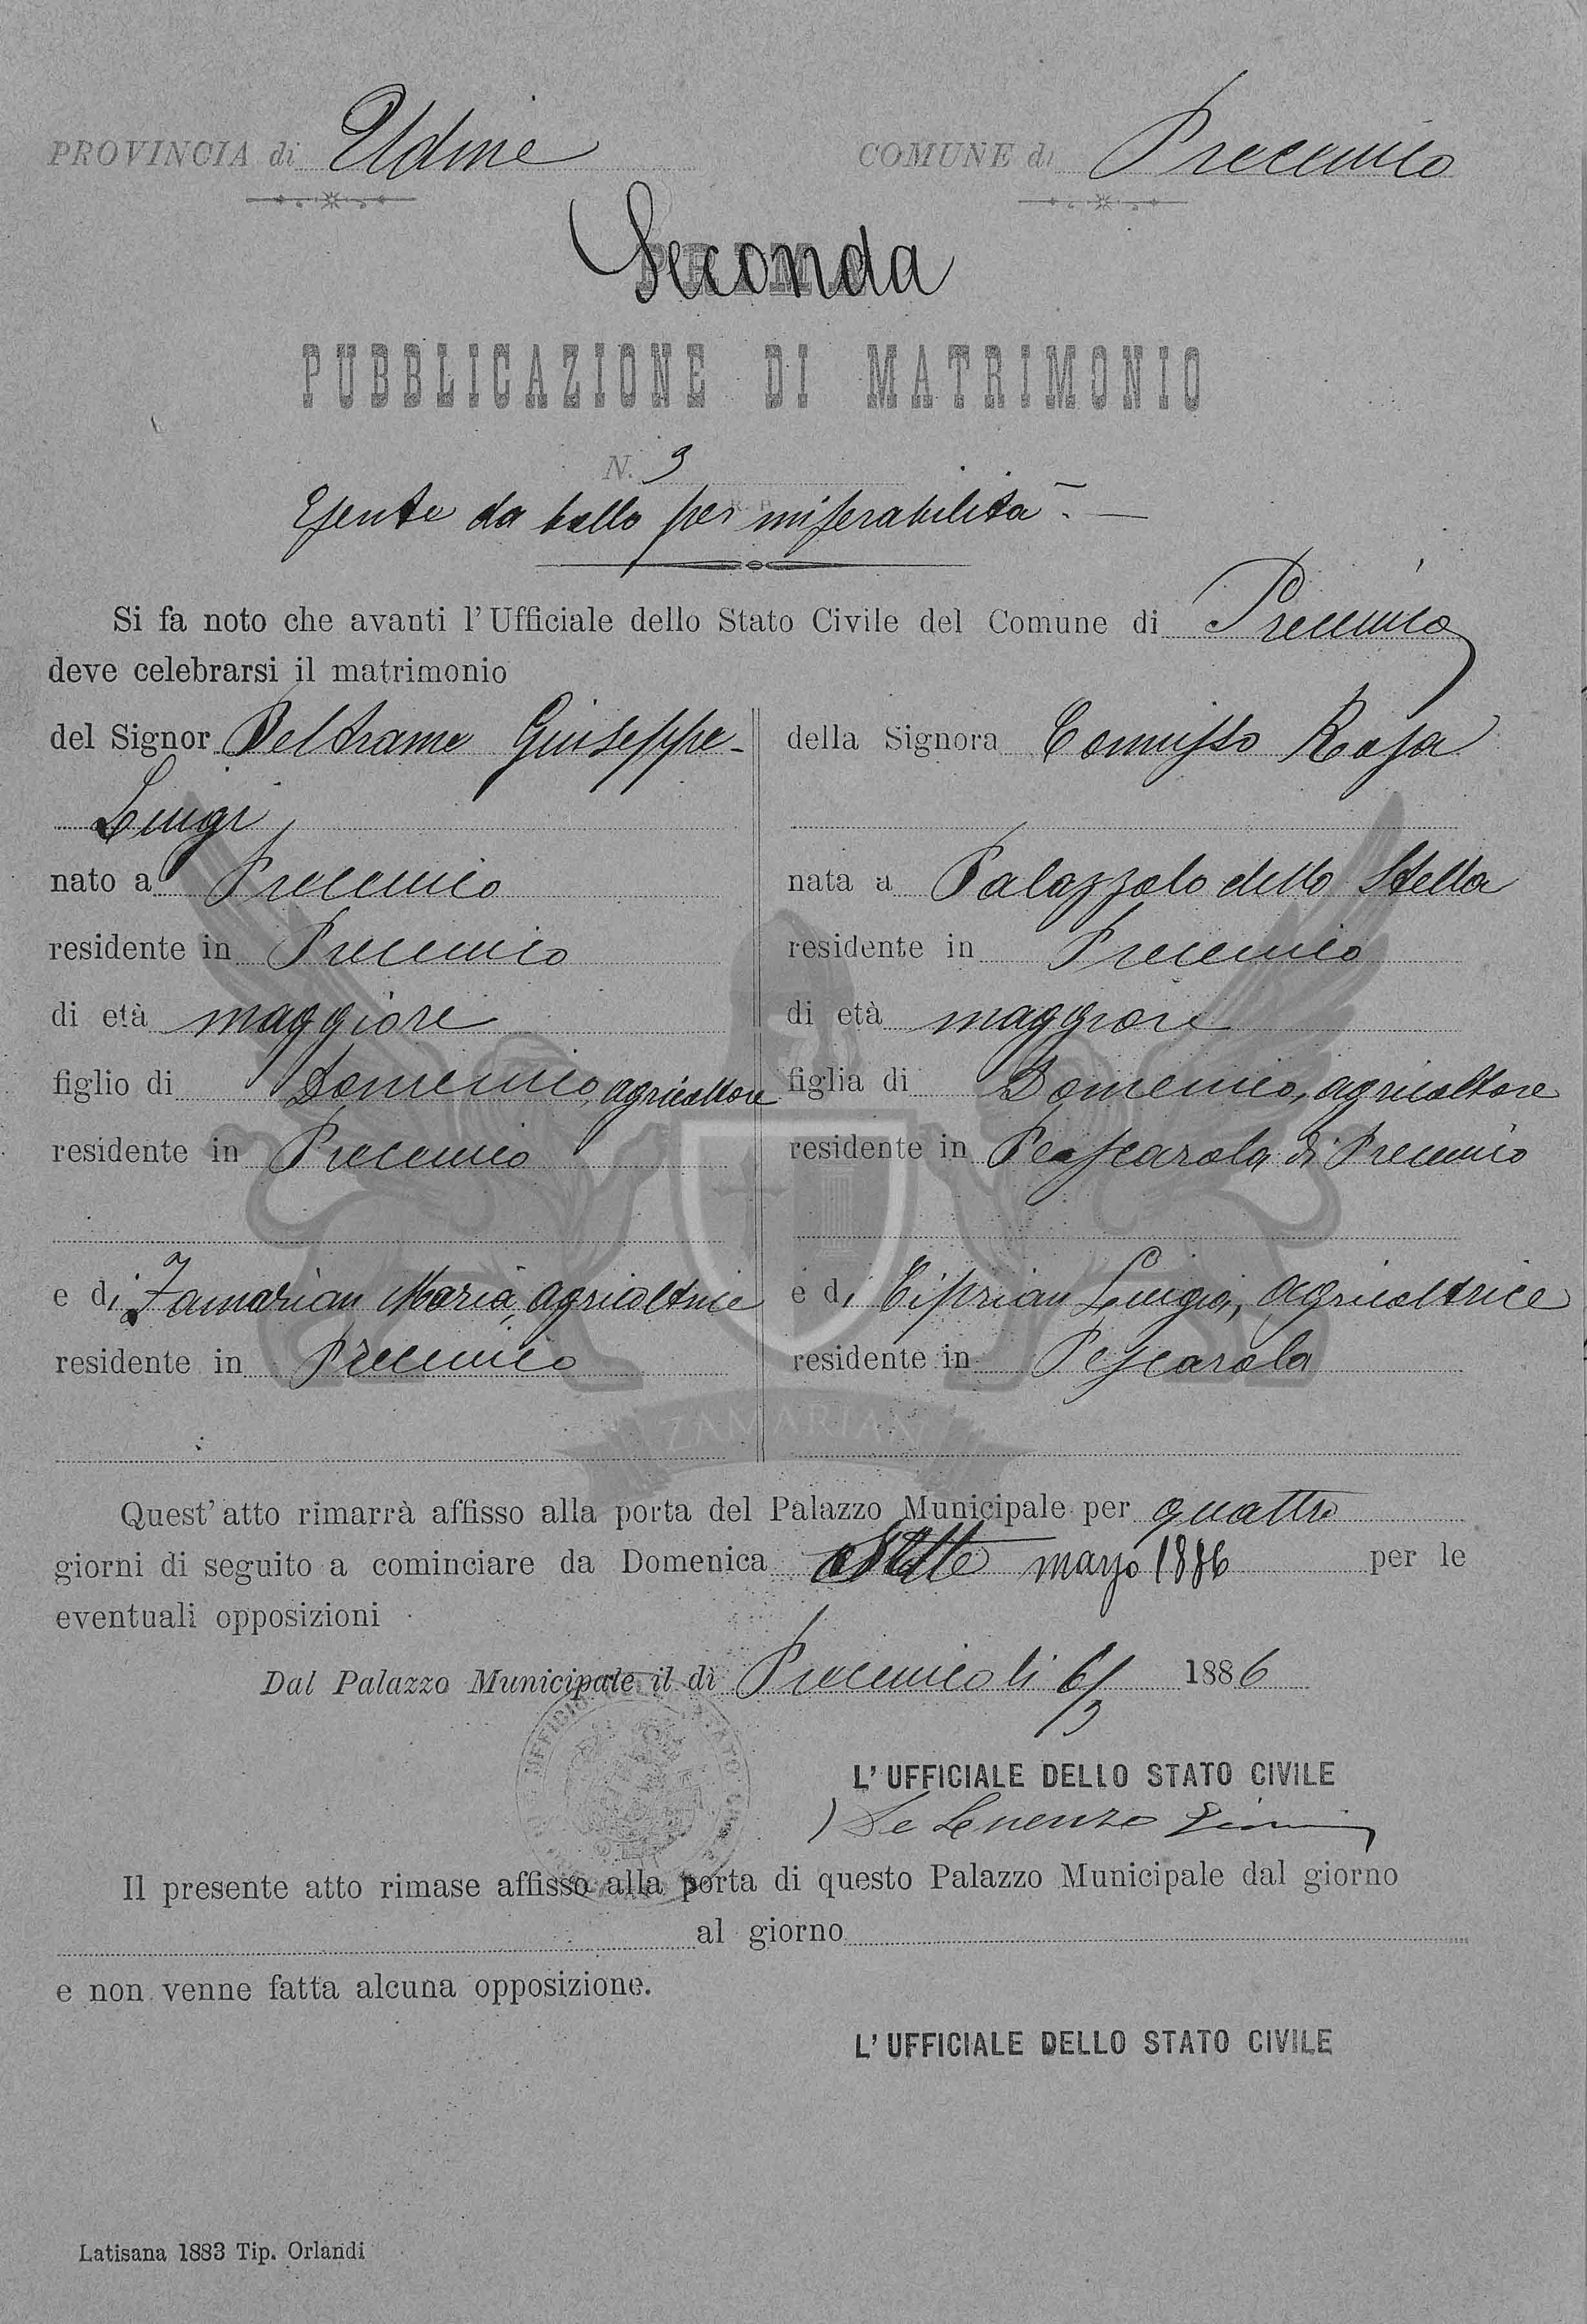 PROVINCIA di Udine COMUNE di Precenico
Seconda
PUBBLICAZIONE DI MATRIMONIO
N. 3
Esente da bollo per miserabilità. —
Si fa noto che avanti l'Ufficiale dello Stato Civile del Comune di Precenico
deve celebrarsi il matrimonio
del Signor Beltrame Giuseppe-
Luigi
nato a Precenico
residente in Precenico
di età maggiore
figlio di Domenico, agricoltore
residente in Precenico
e di Zamarian Maria, agricoltrice
residente in Precenico
della Signora Comisso Rosa
nata a Palazzolo dello Stella
residente in Precenico
di età maggiore
figlia di Domenico, agricoltore
residente in Pescarola di Precenico
e di Ciprian Luigia, agricoltrice
residente in Pescarola
ZAMARIAN
Quest'atto rimarrà affisso alla porta del Palazzo Municipale per quattro
giorni di seguito a cominciare da Domenica Sette marzo 1886 per le
eventuali opposizioni
Dal Palazzo Municipale il dì Precenico li 6/3 1886
UFFICIO STATO
L'UFFICIALE DELLO STATO CIVILE
De Lorenzo
Il presente atto rimase affisso alla porta di questo Palazzo Municipale dal giorno
al giorno
e non venne fatta alcuna opposizione.
L'UFFICIALE DELLO STATO CIVILE
Latisana 1883 Tip. Orlandi